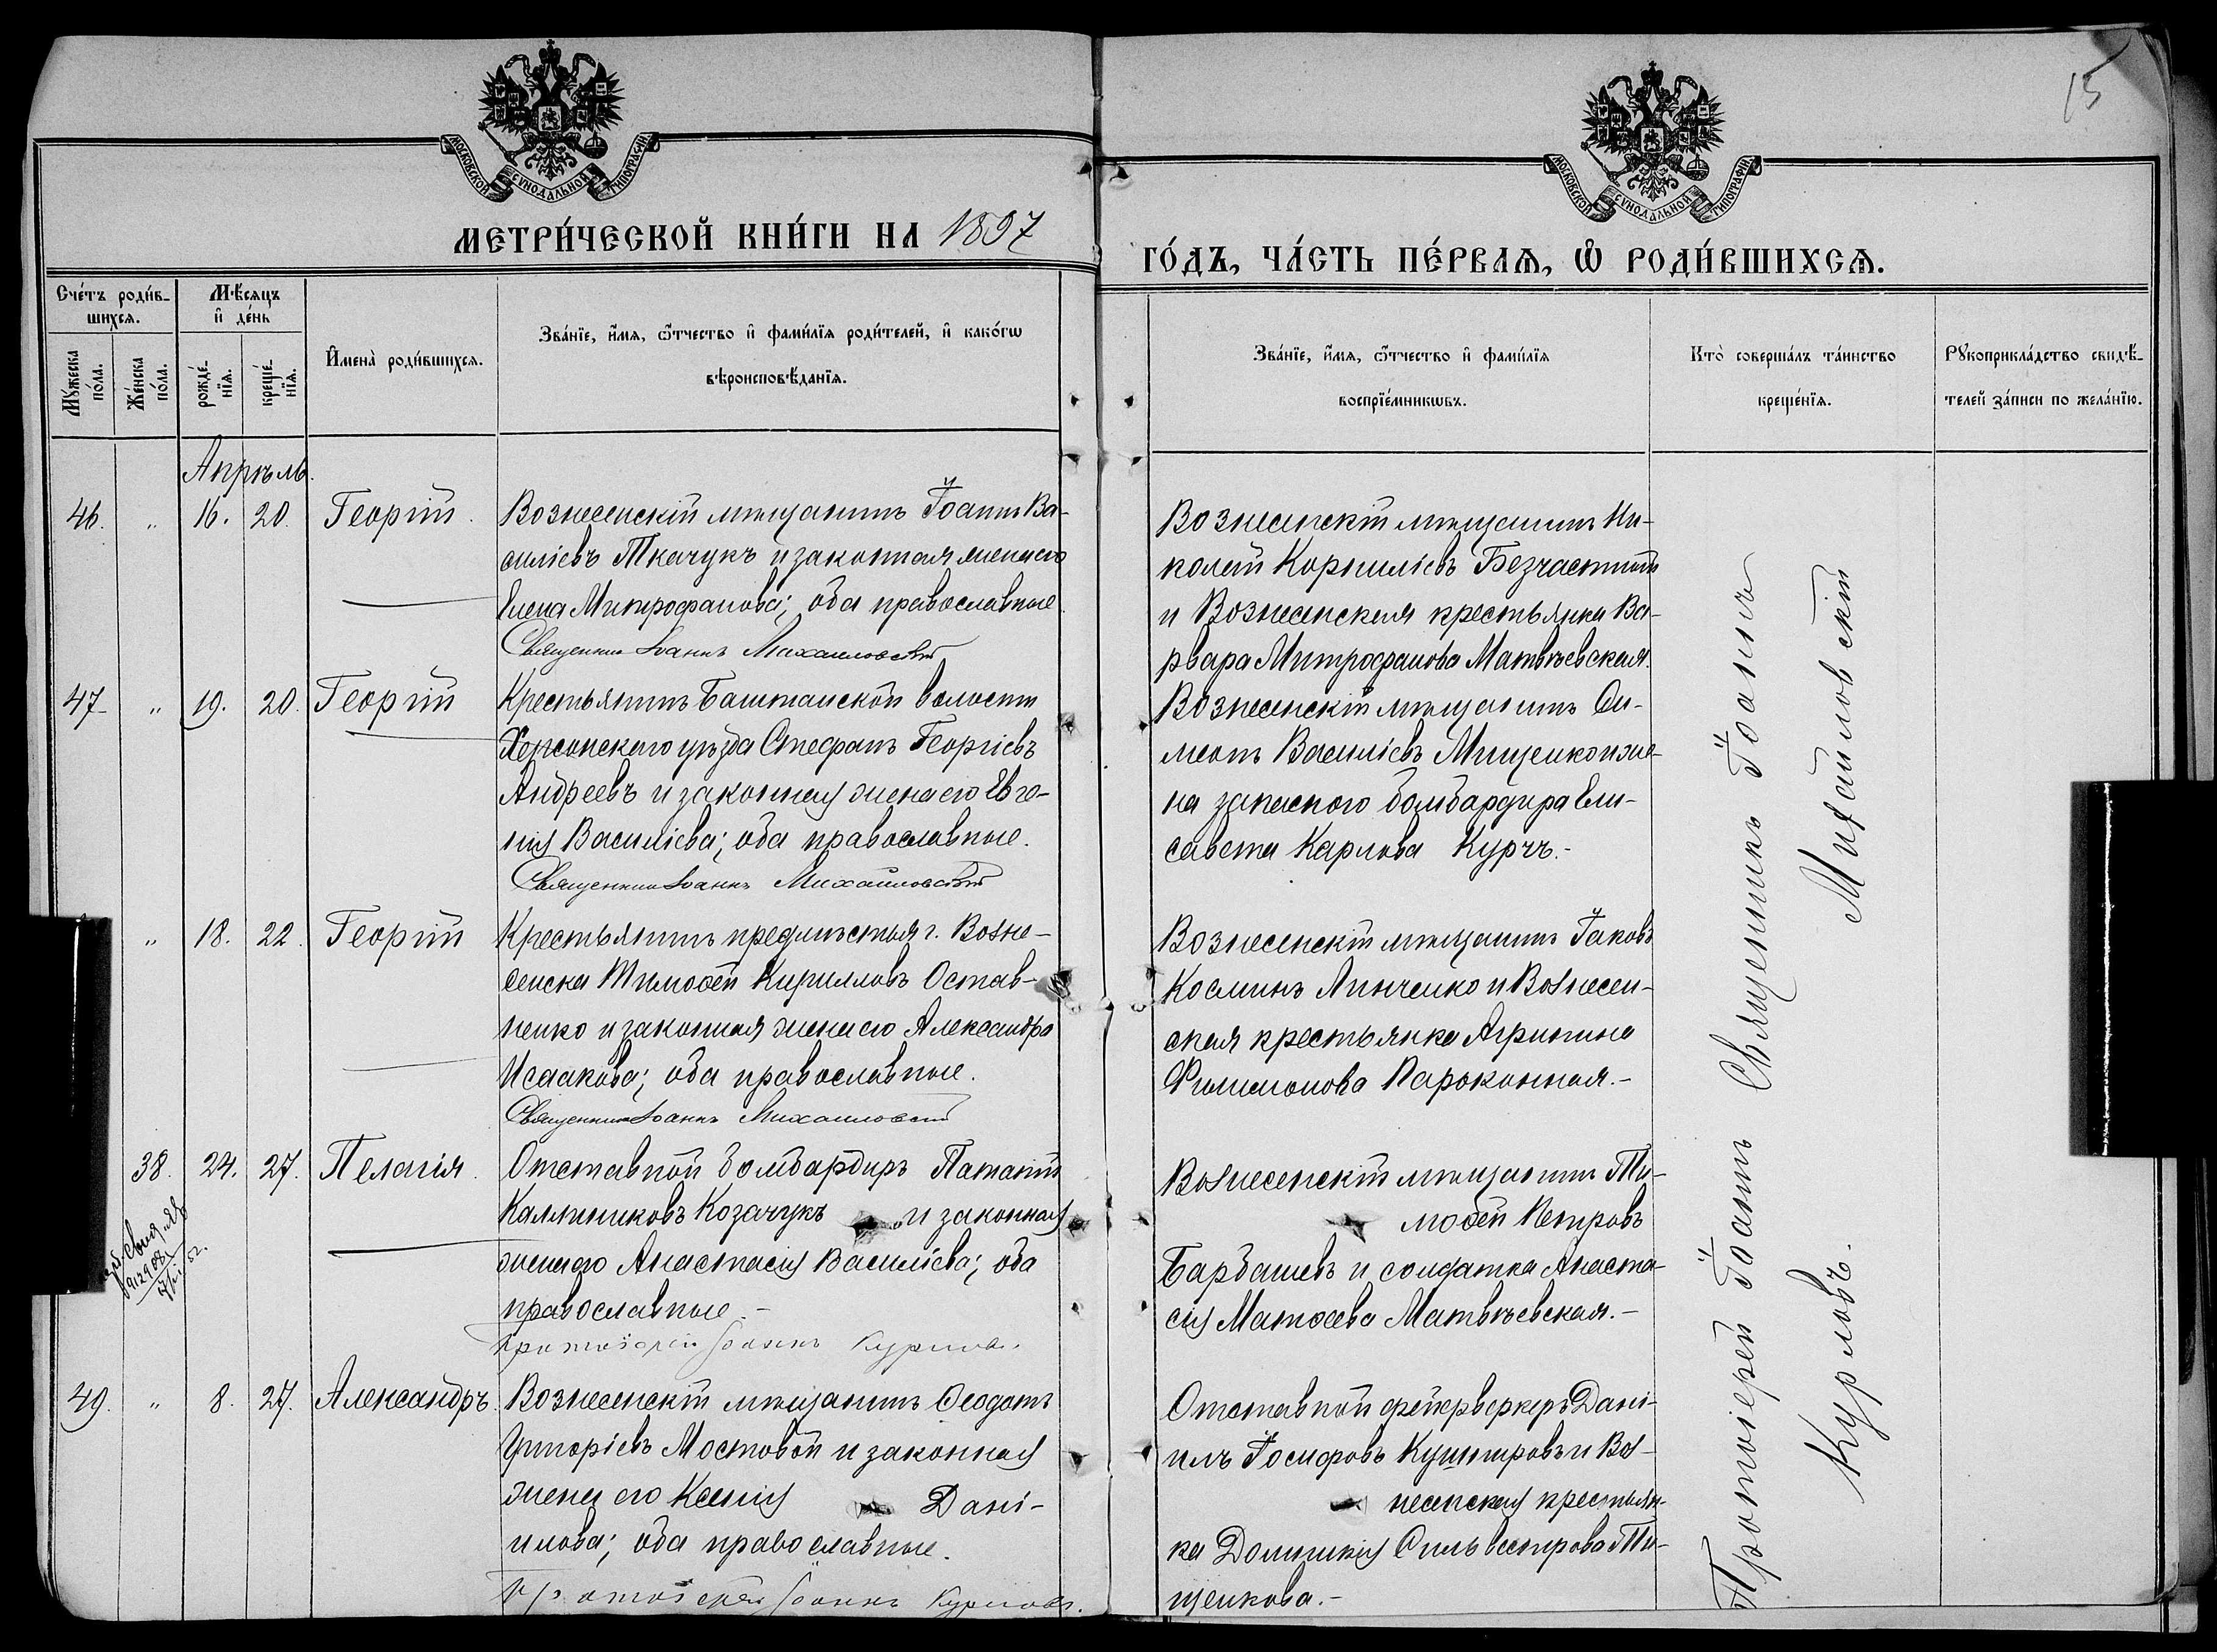 15
МОСКОВСКОЙ СѴНОДАЛЬНОЙ ТИПОГРАФІИ
МОСКОВСКОЙ СѴНОДАЛЬНОЙ ТИПОГРАФІИ
МЕТРИ́ЧЕСКОЙ КНИ́ГИ НА 1897
ГО́ДЪ, ЧА́СТЬ ПЕ́РВАѦ, Ѽ РОДИ́ВШИХСѦ.
Сче́тъ роди́в-
шихсѧ.
Мꙋ́жеска
по́ла.
Же́нска
по́ла.
Мѣ́сѧцъ
и҆ де́нь
рожде́-
нїѧ.
креще́-
нїѧ.
И҆мена̀ роди́вшихсѧ.
Зва́нїе, и҆́мѧ, ѻ҆́тчество и҆ фами́лїѧ роди́телей, и҆ како́гѡ
вѣроисповѣ́данїѧ.
Зва́нїе, и҆́мѧ, ѻ҆́тчество и҆ фами́лїѧ
воспрїе́мникѡвъ.
Кто̀ соверша́лъ та́инство
креще́нїѧ.
Рꙋкоприкла́дство свидѣ́-
телей за́писи по жела́нїю.
Апрѣль.
46. " 16. 20. Георгій.
Вознесенскій мѣщанинъ Іоаннъ Ва-
силіевъ Ткачукъ и законная жена его
Елена Митрофанова; оба православные.
Священникъ Іоаннъ Михайловскій
Вознесенскій мѣщанинъ Ни-
колай Корниліевъ Безчастный
и Вознесенская крестьянка Ва-
рвара Митрофанова Матвѣевская.
47 " 19. 20. Георгій
Крестьянинъ Баштанской волости
Херсонскаго уѣзда Стефанъ Георгіевъ
Андреевъ и законная жена его Евге-
нія Василіева; оба православные.
Священникъ Іоаннъ Михайловскій
Вознесенскій мѣщанинъ Си-
меонъ Василіевъ Мищенко и же-
на запаснаго бомбардира Ели-
савета Карлова Курчъ.-
" 18. 22. Георгій
Крестьянинъ предмѣстья г. Возне-
сенска Тимоѳей Кирилловъ Остав-
ненко и законная жена его Александра
Исаакова; оба православные.
Священникъ Іоаннъ Михайловскій
Вознесенскій мѣщанинъ Іаковъ
Косминъ Линченко и Вознесен-
ская крестьянка Агрипина
Филимонова Пароконная.-
38. 24. 27. Пелагія.
Отставной бомбардиръ Патапій
Каллиниковъ Козачукъ и законная
жена его Анастасія Василіева; оба
православные.-
Протоіерей Іоаннъ Курловъ.
Вознесенскій мѣщанинъ Ти-
моѳей Петровъ
Барбашевъ и солдатка Анаста-
сія Матѳеева Матвѣевская.-
49. " 8. 27. Александръ.
Вознесенскій мѣщанинъ Ѳеодотъ
Григоріевъ Мостовой и законная
жена его Ксенія Дані-
илова; оба православные.
Протоіерей Іоаннъ Курловъ.
Отставной фейерверкеръ Дані-
илъ Іосифовъ Кушнировъ и Воз-
несенская крестьян-
ка Домникія Сильвестрова Ти-
щенкова.-
Священникъ Іоаннъ
Михайловскій
Протоіерей Іоаннъ
Курловъ.